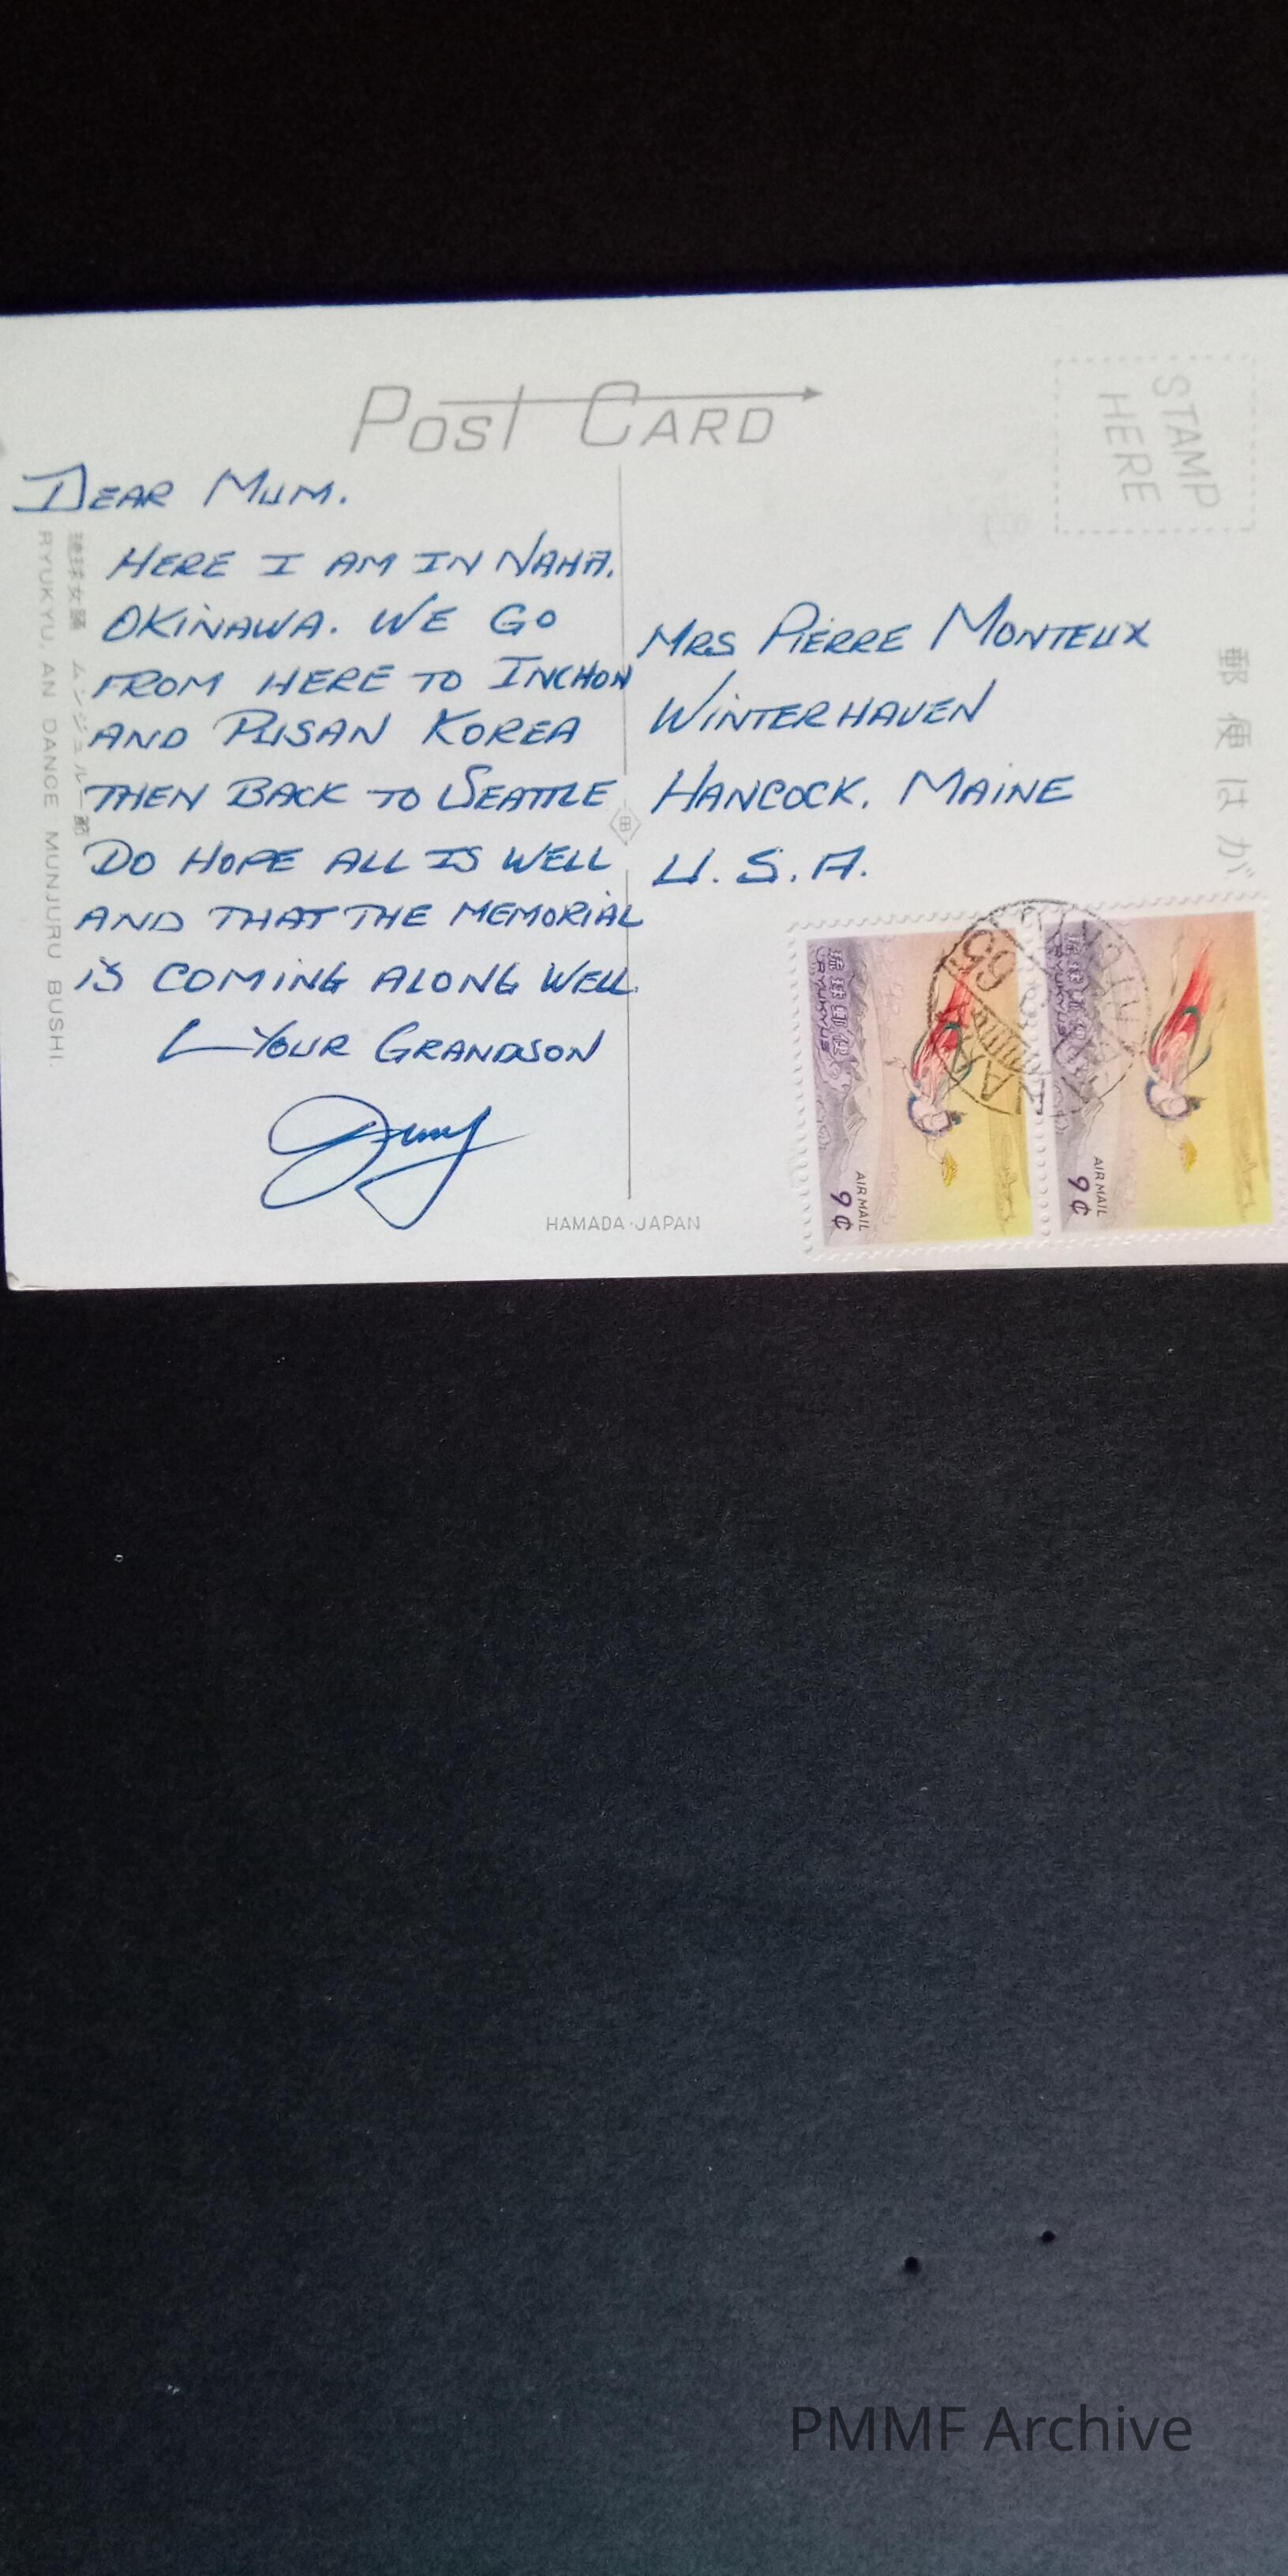 POST CARD
STAMP
HERE
DEAR MUM.
HERE I AM IN NAHA.
OKINAWA. WE GO
FROM HERE TO INCHON
AND PUSAN KOREA
THEN BACK TO SEATTLE
DO HOPE ALL IS WELL
AND THAT THE MEMORIAL
IS COMING ALONG WELL.
YOUR GRANDSON
MRS PIERRE MONTEUX
WINTERHAVEN
HANCOCK, MAINE
U.S.A.
郵便はがき
琉球女踊 ムンジュルー節
RYUKYU, AN DANCE MUNJURU BUSHI.
HAMADA·JAPAN
琉球郵便
RYUKYUS
AIRMAIL
9¢
琉球郵便
RYUKYUS
AIRMAIL
9¢
65
PMMF Archive